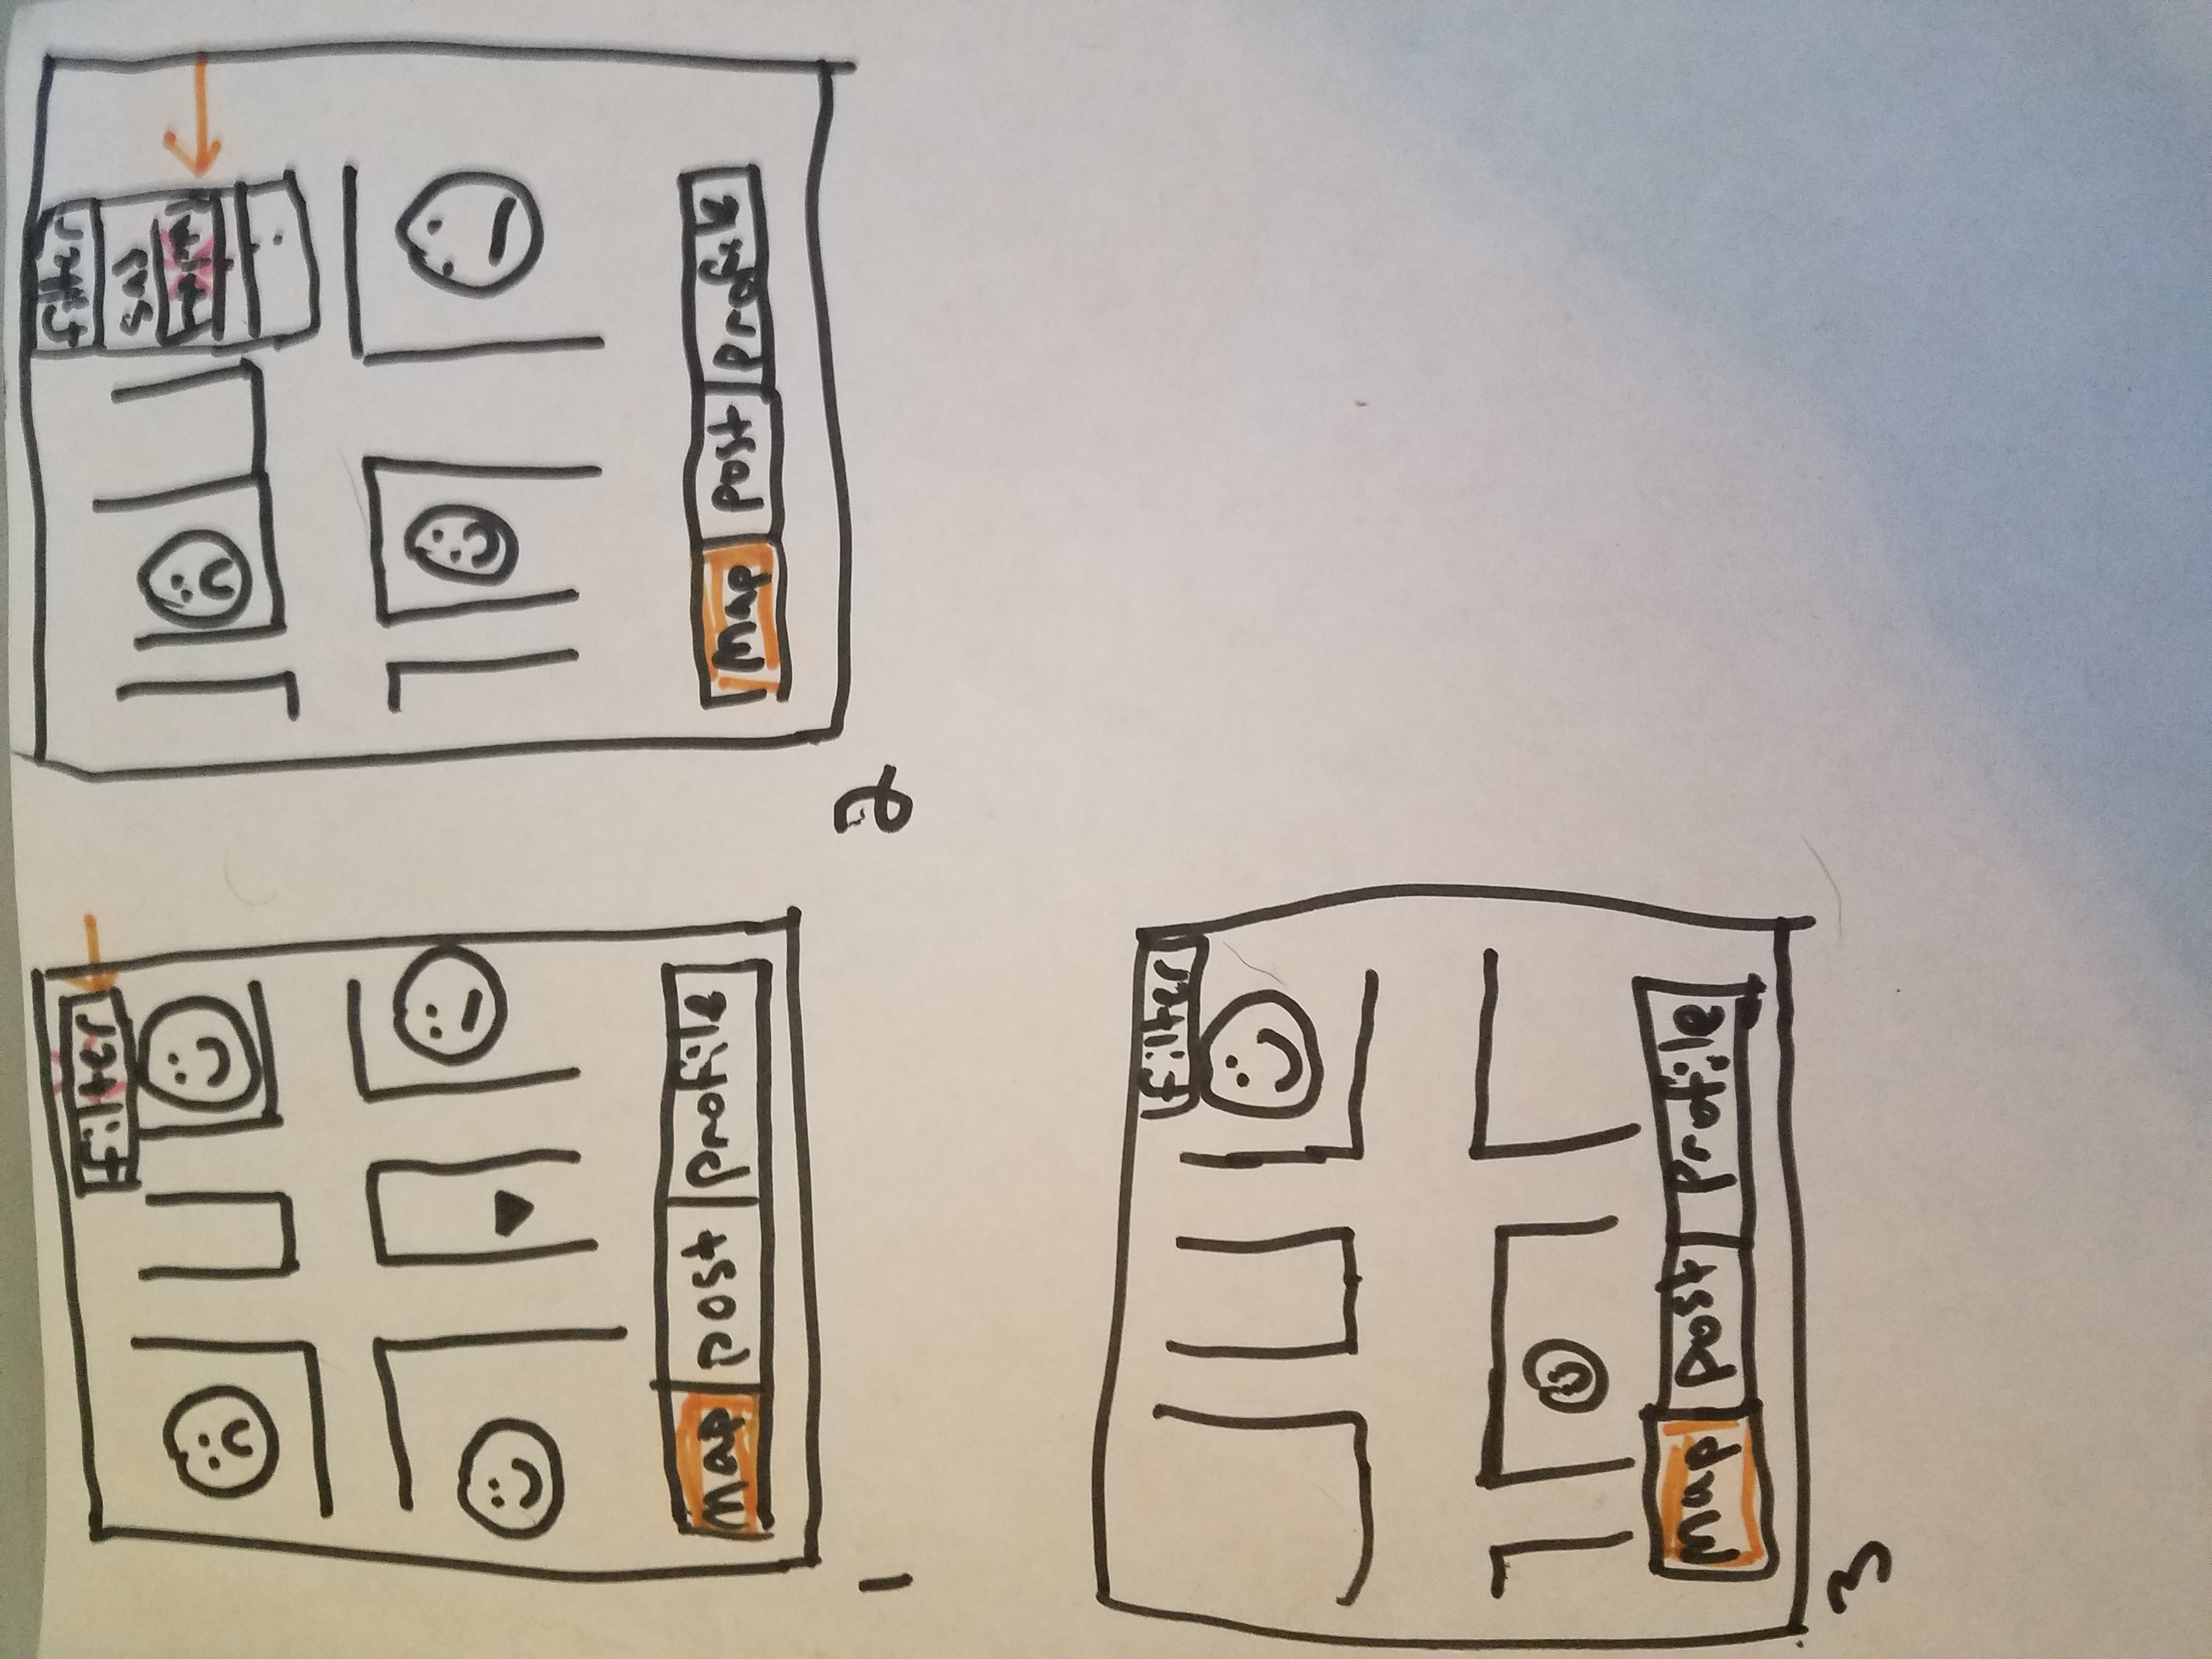 filter
map post profile
1
filter
sad
map post profile
2
filter
map post profile
3